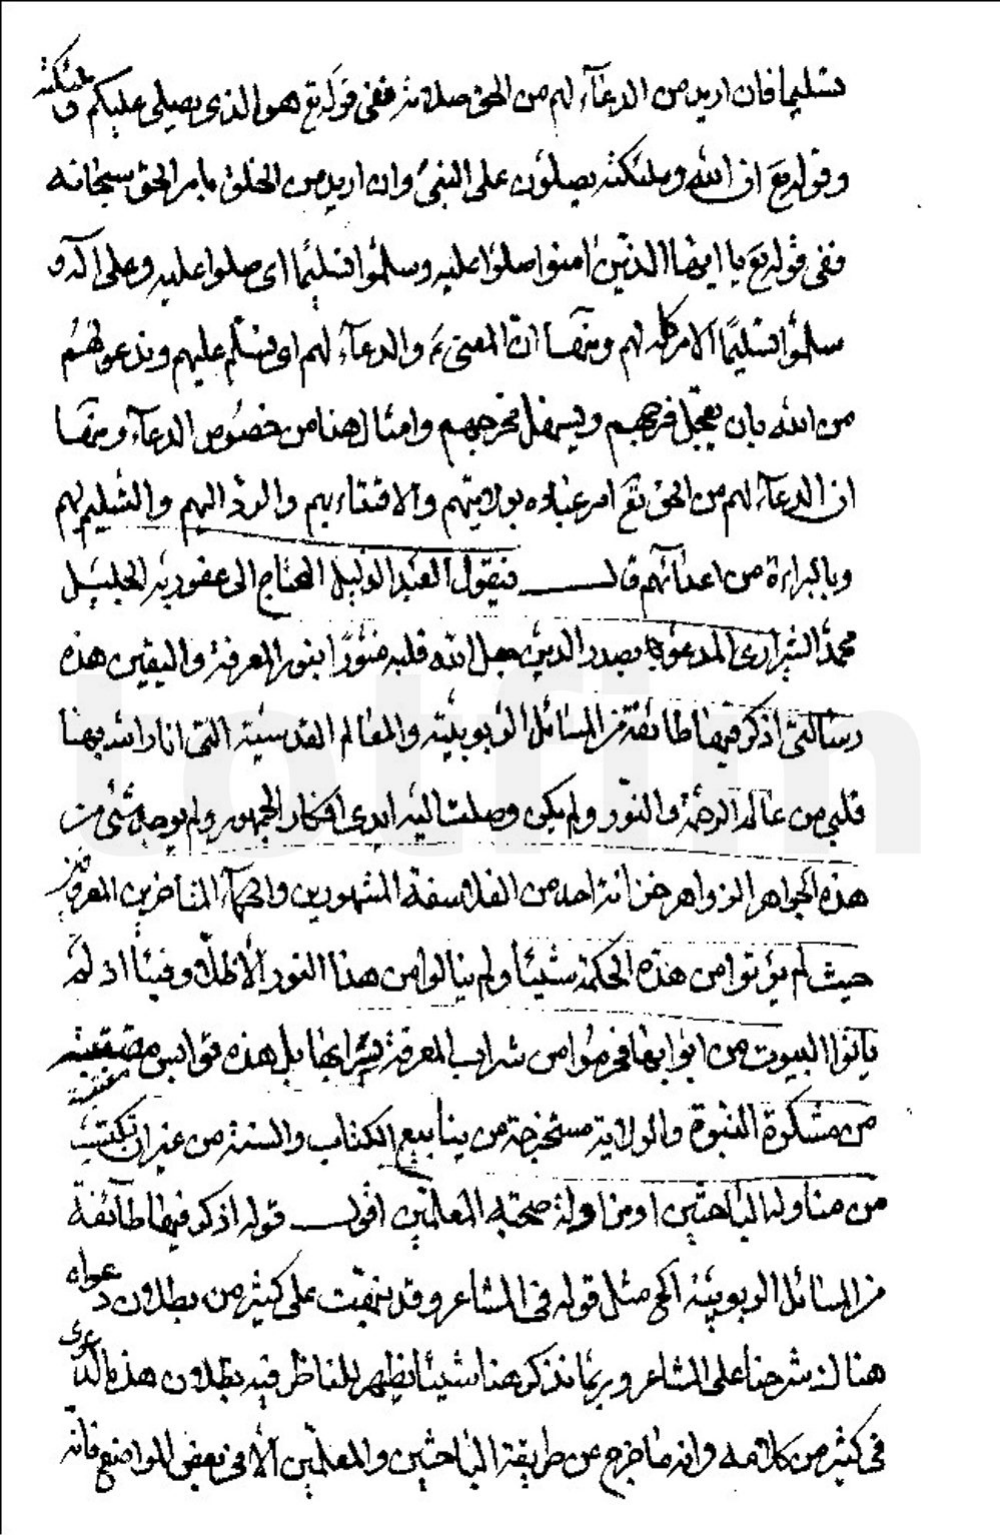 تسليما فان اريد من الدعآء لهم من الحق صلاته ففى قوله تع هو الذى يصلى عليكم و ملئكته
وقوله تع ان الله وملئكته يصلون على النبى وان اريد من الخلق بامر الحق سبحانه
ففى قوله تع يا ايها الذين امنوا صلوا عليه وسلموا تسليما اى صلوا عليه وعلى آله و
سلموا تسليمًا الامر كله لهم ومنها ان المعنى والدعآء لهم اى نسلم عليهم وندعو لهم
من الله بان يعجل فرجهم ويسهل مخرجهم وامثال هذا من خصوص الدعآء ومنها
ان الدعآء لهم من الحق تع امر عباده بولايتهم والاقتداء بهم والرد اليهم والتسليم لهم
وبالبراءة من اعدآئهم قال فيقول العبد الذليل المحتاج الى عفو ربه الجليل
محمد الشيرازى المدعو بصدر الدين جعل الله قلبه منوّرًا بنور المعرفة واليقين هذه
رسالتى اذكر فيها طائفة من المسائل الربوبية والمعالم القدسية التى انار الله بها
قلبى من عالم الرحمة والنور ولم يكن وصلت اليه ايدى افكار الجمهور ولم يوجد شئ من
هذه الجواهر الزواهر خزانة احد من الفلاسفة المشهورين والحكمآء المتاخرين المعروفين
حيث لم يؤتوا من هذه الحكمة شيئا ولم ينالوا من هذا النور الا ظلا وفيئا اذ لم
ياتوا البيوت من ابوابها فحرموا من شراب المعرفة بسرابها بل هذه قوابس مقتبسة
من مشكوة النبوة والولاية مستخرجة من ينابيع الكتاب والسنة من غير ان تكتسب
من مناولة الباحثين او مزاولة صحبة المعلمين اقول قوله اذكر فيها طآئفة
من المسائل الربوبية الخ مثل قوله فى المشاعر وقد نبهت على كثير من بطلان دعواه
هناك شرحنا على المشاعر وربما نذكر هنا شيئا يظهر للناظر فيه بطلان هذه الدعوى
فى كثير من كلامه وانه ما خرج عن طريقة الباحثين والمعلمين الا فى بعض المواضع فانه